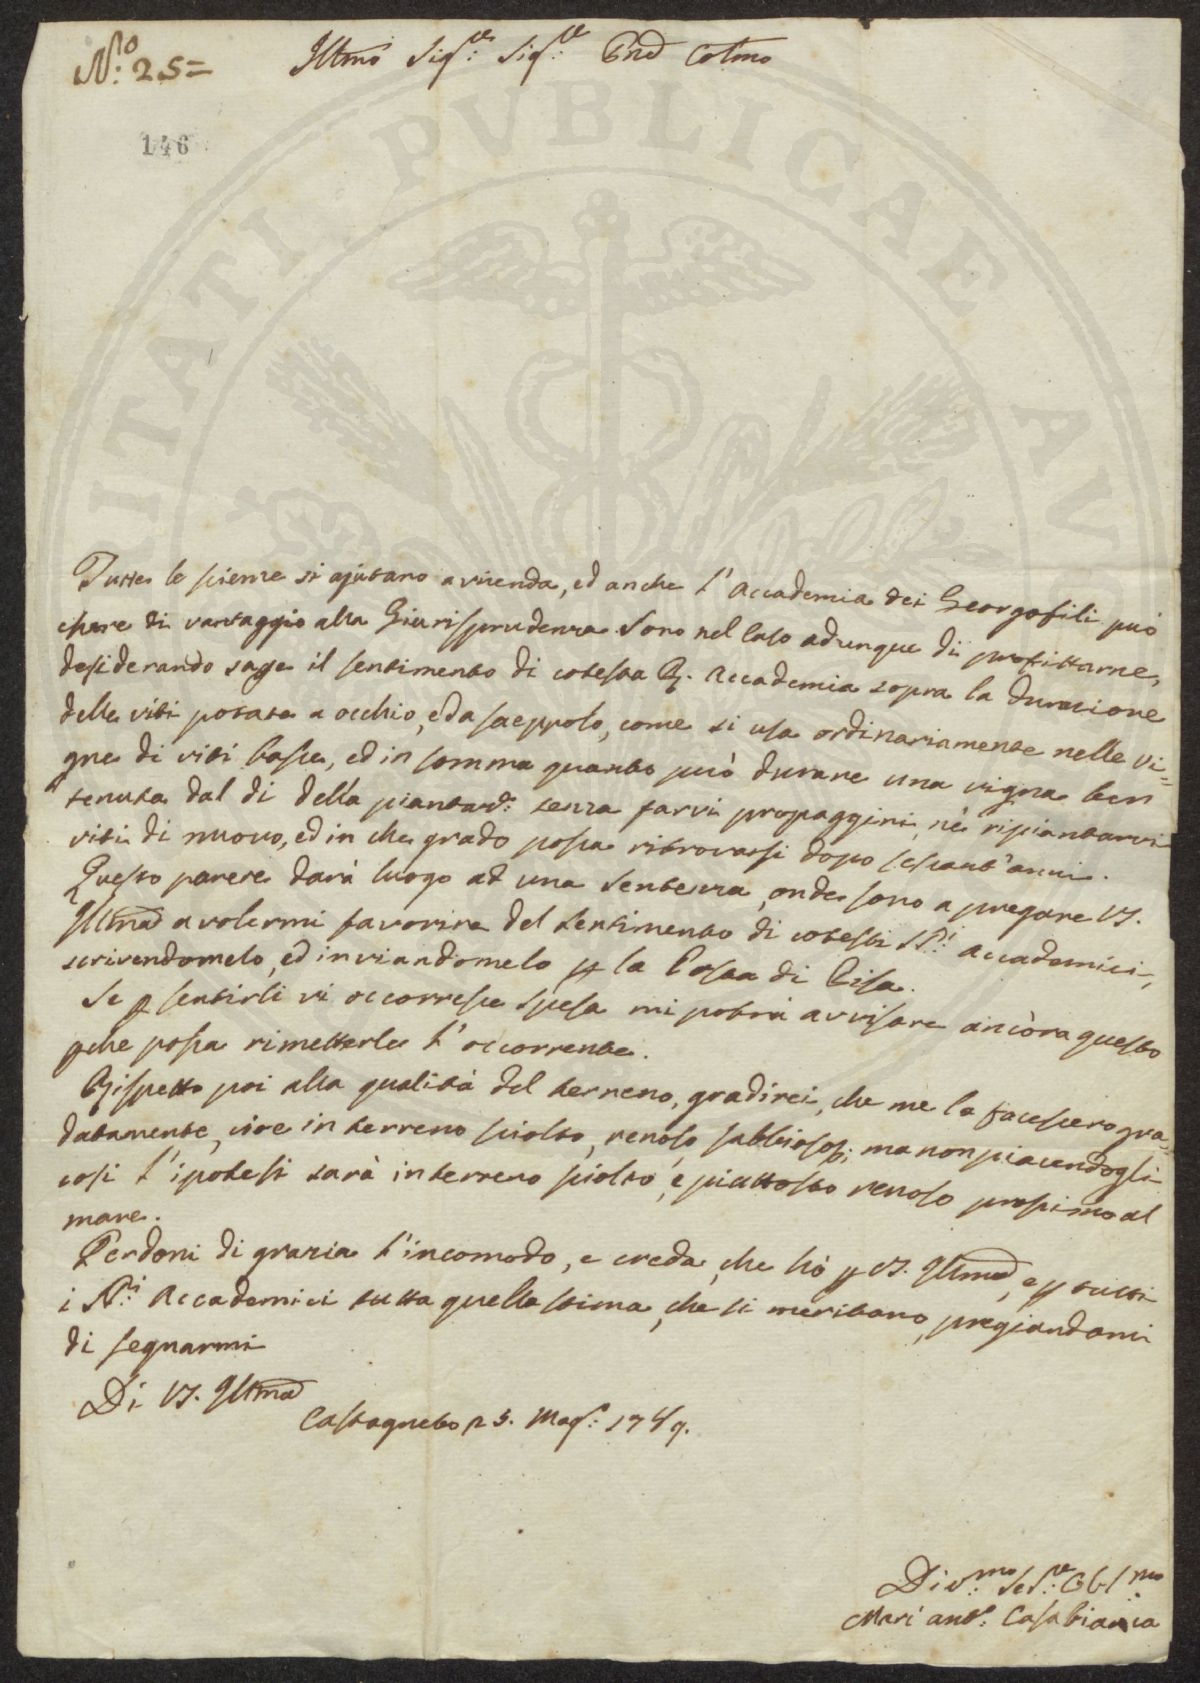 N.º 25=
Illmo Sig.re Sig.re Pnd Colmo
146
Tutte le scienze si ajutano a vicenda, ed anche l'Accademia dei Georgofili può
essere di vantaggio alla Giurisprudenza. Sono nel caso adunque di profittarne,
desiderando sapere il sentimento di cotesta R. Accademia sopra la durazione
delle viti potate a occhio, e da saeppolo, come si usa ordinariamente nelle vi=
gne di viti basse, ed in somma quanto può durare una vigna ben
tenuta dal dì della piantaz: senza farvi propaggini, nè ripiantarvi
viti di nuovo, ed in che grado possa ritrovarsi dopo sessant'anni.
Questo parere darà luogo ad una sentenza, onde sono a pregare VS.
Illma a volermi favorire del sentimento di cotesti SS.ri Accademici,
scrivendomelo, ed inviandomelo p la Posta di Pisa.
Se p sentirli vi occorresse spesa mi potrà avvisare ancòra questo
pche possa rimetterle l'occorrente.
Rispetto poi alla qualità del terreno, gradirei, che me la facessero gra=
datamente, cioe in terreno sciolto, renoso sabbioso p; ma non piacendogli
così l'ipotesi sarà in terreno sciolto, e piuttosto renoso prossimo al
mare.
Perdoni di grazia l'incomodo, e creda, che hò p VS. Illma, e p tutti
i SS.ri Accademici tutta quella stima, che si meritano, pregiandomi
di segnarmi
Di VS. Illma
Castagneto 25. Mag.º 1789.
Div.mo Ser.re Obl.mo
Mari ant.º Casabianca
PUBLICAE